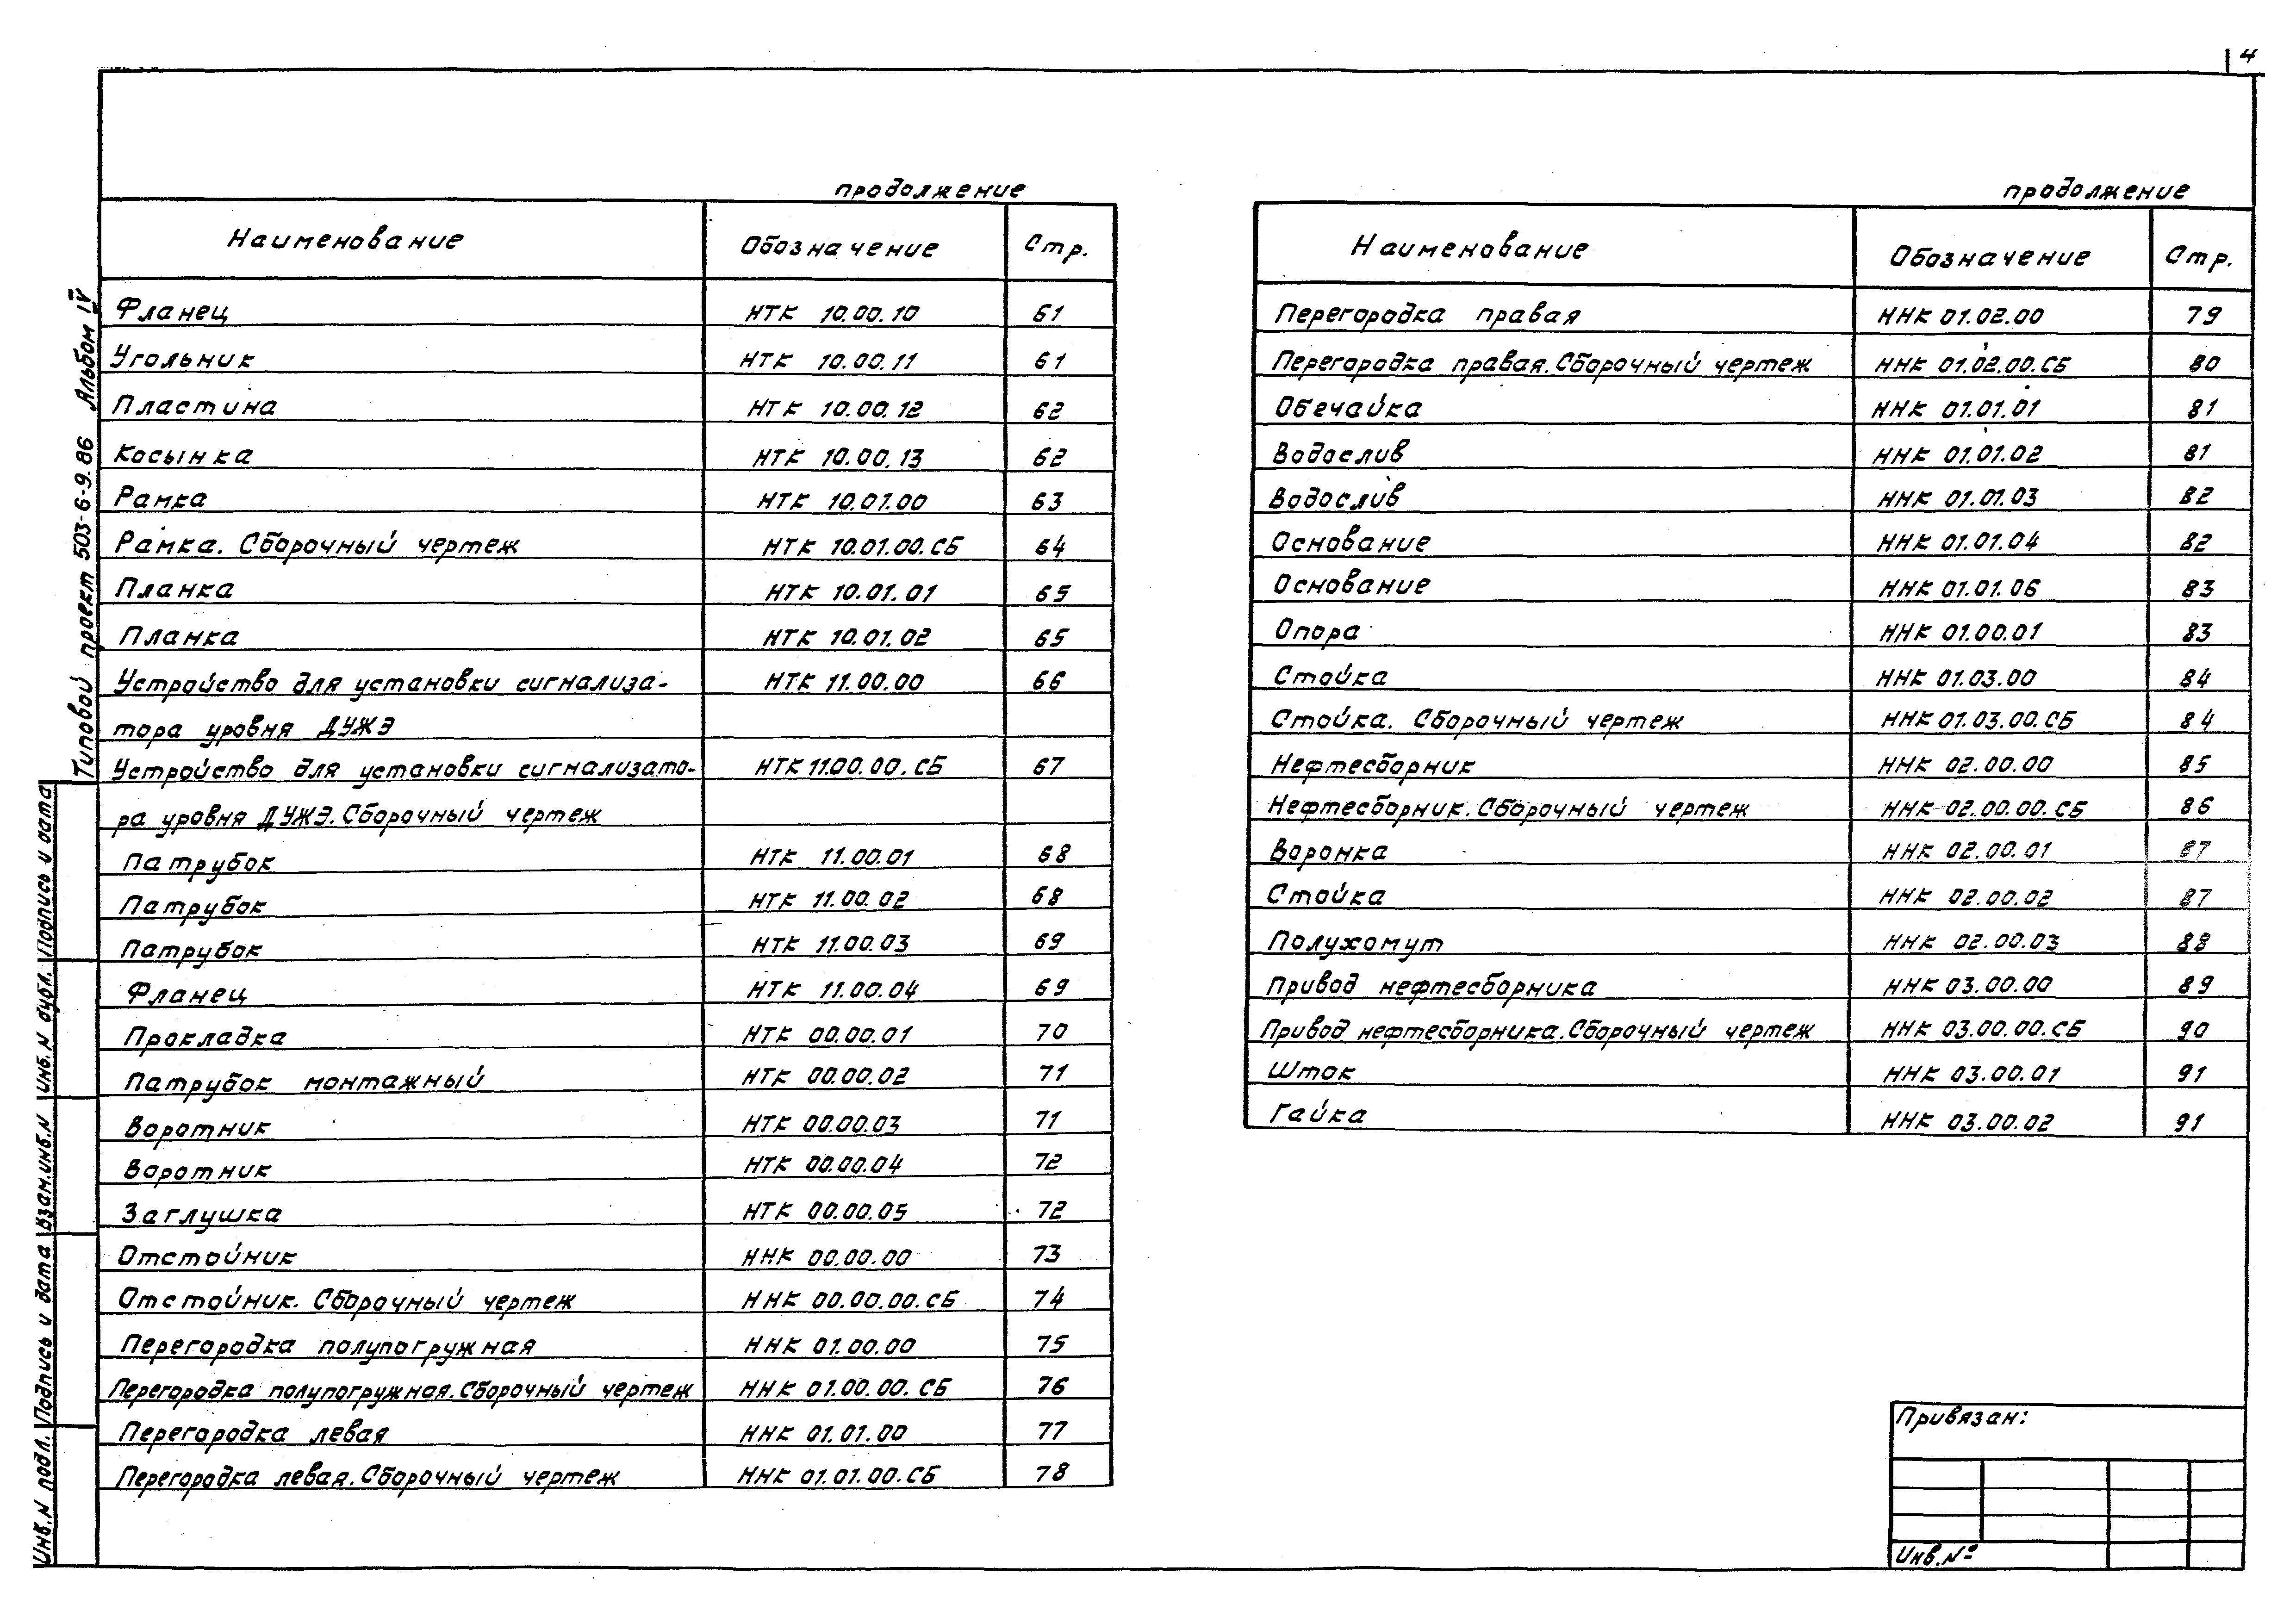 4
продолжение
Наименование Обозначение Стр.
Фланец НТК 10.00.10 61
Угольник НТК 10.00.11 61
Пластина НТК 10.00.12 62
Косынка НТК 10.00.13 62
Рамка НТК 10.01.00 63
Рамка. Сборочный чертеж НТК 10.01.00.СБ 64
Планка НТК 10.01.01 65
Планка НТК 10.01.02 65
Устройство для установки сигнализа- НТК 11.00.00 66
тора уровня ДУЖЭ
Устройство для установки сигнализато- НТК 11.00.00.СБ 67
ра уровня ДУЖЭ. Сборочный чертеж
Патрубок НТК 11.00.01 68
Патрубок НТК 11.00.02 68
Патрубок НТК 11.00.03 69
Фланец НТК 11.00.04 69
Прокладка НТК 00.00.01 70
Патрубок монтажный НТК 00.00.02 71
Воротник НТК 00.00.03 71
Воротник НТК 00.00.04 72
Заглушка НТК 00.00.05 72
Отстойник ННК 00.00.00 73
Отстойник. Сборочный чертеж ННК 00.00.00.СБ 74
Перегородка полупогружная ННК 01.00.00 75
Перегородка полупогружная. Сборочный чертеж ННК 01.00.00.СБ 76
Перегородка левая ННК 01.01.00 77
Перегородка левая. Сборочный чертеж ННК 01.01.00.СБ 78
продолжение
Наименование Обозначение Стр.
Перегородка правая ННК 01.02.00 79
Перегородка правая. Сборочный чертеж ННК 01.02.00.СБ 80
Обечайка ННК 01.01.01 81
Водослив ННК 01.01.02 81
Водослив ННК 01.01.03 82
Основание ННК 01.01.04 82
Основание ННК 01.01.06 83
Опора ННК 01.00.01 83
Стойка ННК 01.03.00 84
Стойка. Сборочный чертеж ННК 01.03.00.СБ 84
Нефтесборник ННК 02.00.00 85
Нефтесборник. Сборочный чертеж ННК 02.00.00.СБ 86
Воронка ННК 02.00.01 87
Стойка ННК 02.00.02 87
Полухомут ННК 02.00.03 88
Привод нефтесборника ННК 03.00.00 89
Привод нефтесборника. Сборочный чертеж ННК 03.00.00.СБ 90
Шток ННК 03.00.01 91
Гайка ННК 03.00.02 91
Привязан:
Инв.№
Типовой проект 503-6-9.86 Альбом IV
Инв.N подл. Подпись и дата Взам.инв.N Инв.N дубл. Подпись и дата